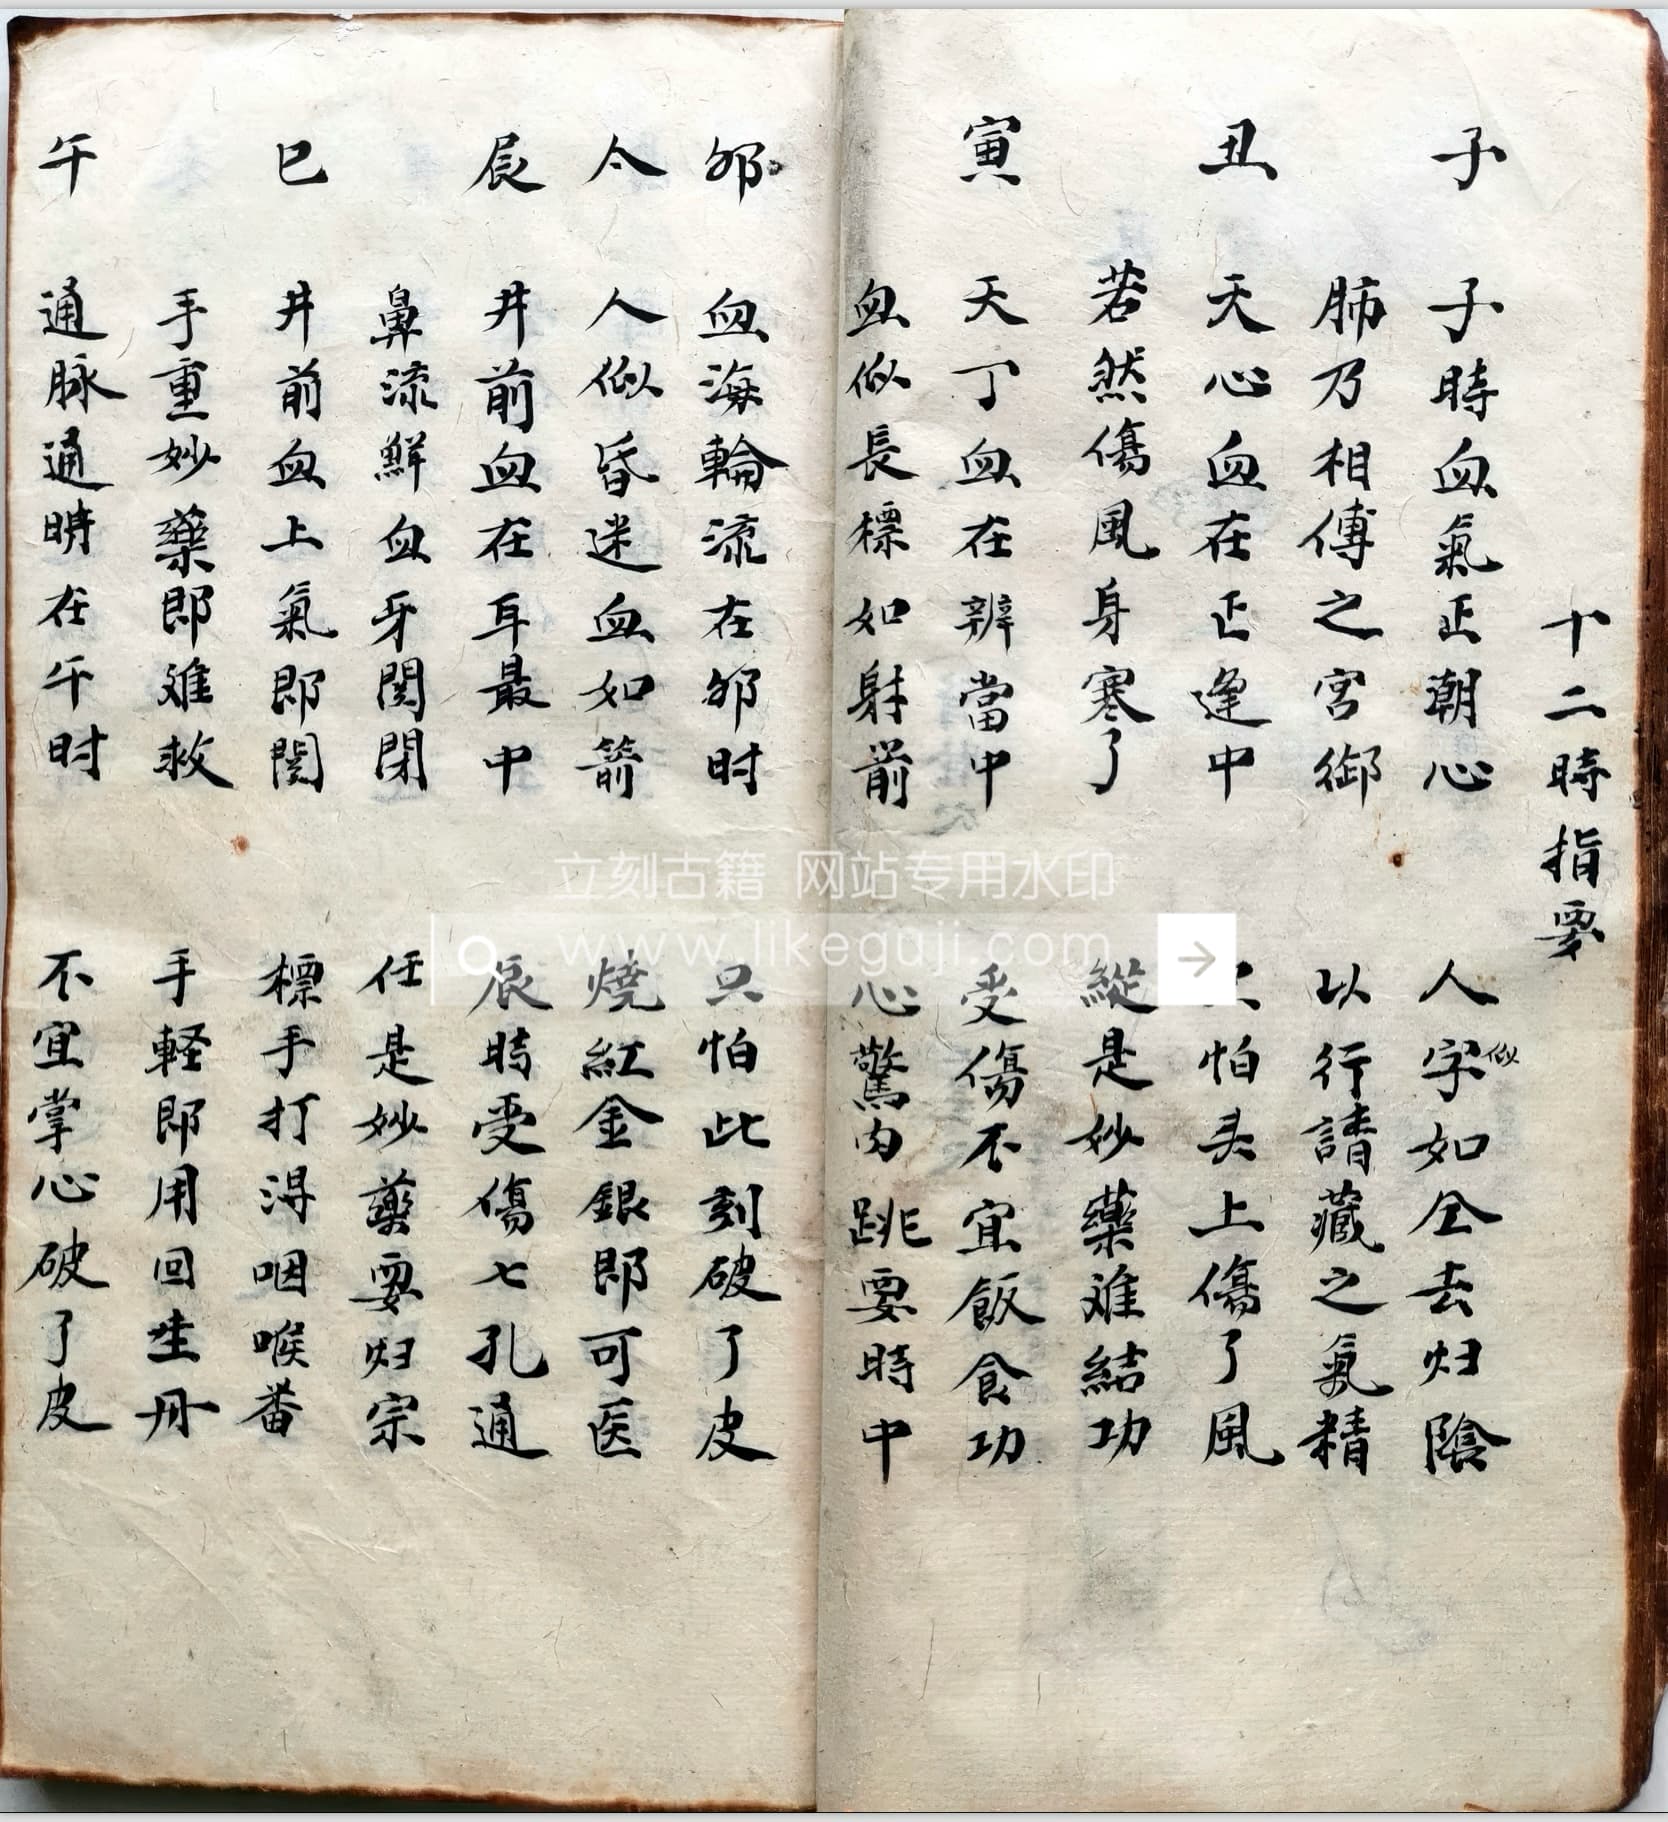 十二時指要
子 子時血氣正朝心 人字似如全去归陰
肺乃相傳之宮御 以行請藏之氣精
丑 天心血在正逢中 怕头上傷了風
若然傷風身寒了 縱是妙藥难結功
寅 天丁血在辨當中 受傷不宜飯食功
血似長標如射前 心驚肉跳要時中
卯 血海輪流在卯时 只怕此刻破了皮
亼 人似昏迷血如箭 燒紅金銀即可医
辰 井前血在耳最中 辰時受傷七孔通
鼻流鮮血牙関閉 任是妙藥要归宗
巳 井前血上氣即関 標手打淂咽喉番
手重妙藥即难救 手軽即用回生丹
午 通脉通明在午时 不宜掌心破了皮
立刻古籍 网站专用水印
www.likeguji.com